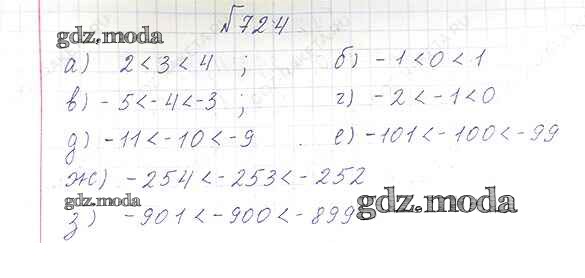 № 724
gdz.moda
а) 2 < 3 < 4 ; б) - 1 < 0 < 1
в) - 5 < - 4 < - 3 ; г) - 2 < - 1 < 0
д) - 11 < - 10 < - 9 . е) - 101 < - 100 < - 99
ж) - 254 < - 253 < - 252
gdz.moda
з) - 901 < - 900 < - 899 gdz.moda